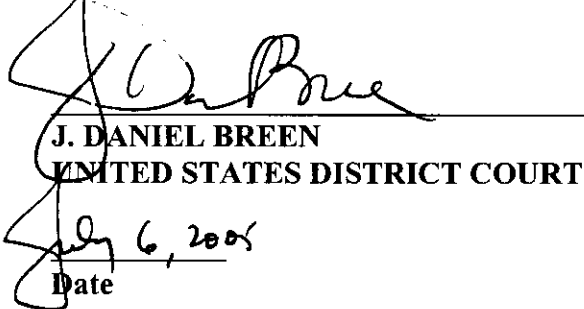 J. Dan Breen
J. DANIEL BREEN
UNITED STATES DISTRICT COURT
July 6, 2005
Date